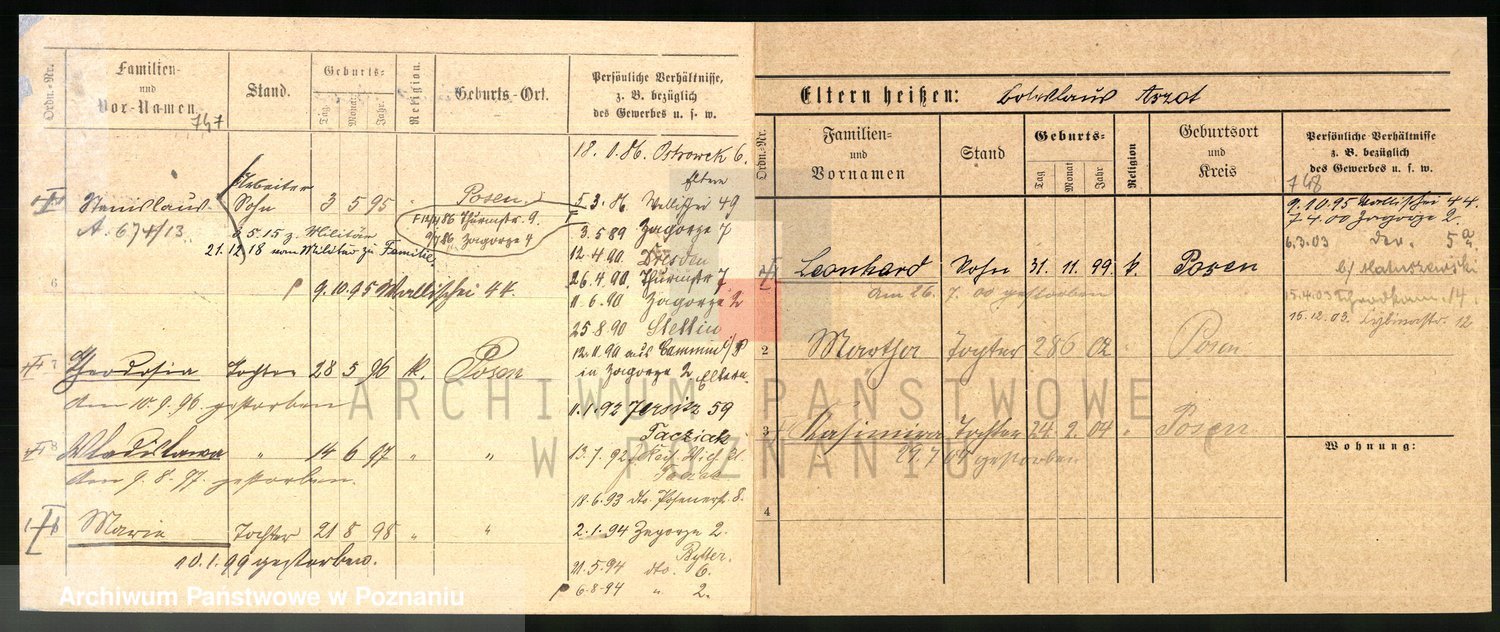 Ordn.-Nr.
Familien-
und
Vor-Namen
Stand.
Geburts-
Tag.
Monat.
Jahr.
Religion.
Geburts-Ort.
Persönliche Verhältnisse,
z. B. bezüglich
des Gewerbes u. s. w.
747
18. 1. 86. Ostrowek 6.
Eltern
Stanislaus
Arbeiter
Sohn
3 5 95
"
Posen
3. 86. Wallischei 49
A: 674/13
86 Thurmstr. 9.
86 Zagorze 4
3.5.89 Zagorze 7
5.15 z. Militär
21.12.18 vom Militär zu Familie.
12.4.90 Dresden
6
9.10.95 Wallischei 44.
26.4.90 Thurmstr 7.
11.6.90 Zagorze 2
25.8.90 Stettin
12.11.90 aus Cammin i/P
7
Theodosia
Tochter
28 5 96
k.
Posen
in Zagorze 2 Eltern.
Am 10.9.96. gestorben
11.1.92 Jersitz 59
8
Wladislawa
"
14 6 97
"
"
13.1.92
Am 9.8.97. gestorben.
18.6.93 dto. Posenerst. 8.
Marie
Tochter
21 8 98
"
"
2.1.94 Zagorze 2.
10.1.99 gestorben.
21.5.94 dto. 6.
6.8.94 " 2.
Eltern heißen: Boleslaus Arzot
Ordn.-Nr.
Familien-
und
Vornamen
Stand
Geburts-
Tag
Monat
Jahr
Religion
Geburtsort
und
Kreis
Persönliche Verhältnisse
z. B. bezüglich
des Gewerbes u. s. w.
748
9.10.95 Wallischei 44.
7.4.00 Zagorze 2.
6.3.03 dto. 5a
Leonhard
Sohn
31. 11. 99.
k.
Posen
b/ Matuszewski
Am 26. 7. 00 gestorben
15.4.03 14.
15.12.03. Cybinastr. 12
2
Martha
Tochter
28 6 02
"
Posen
3
Kasimira
Tochter
24. 2. 04
"
Posen
gestorben
Wohnung:
4
ARCHIWUM PAŃSTWOWE
W POZNANIU
Archiwum Państwowe w Poznaniu